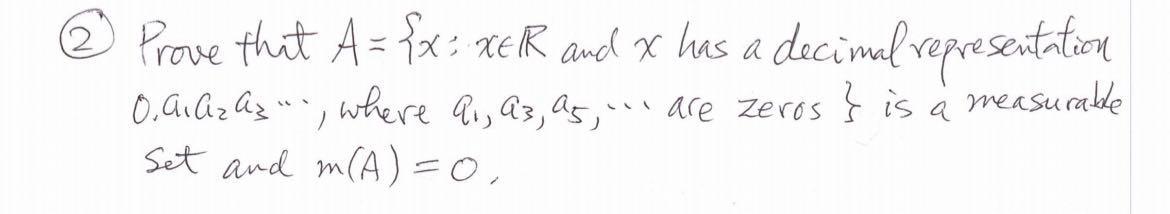 ② Prove that A = {x : x∈ℝ and x has a decimal representation
0.a₁a₂a₃..., where a₁, a₃, a₅, ... are zeros } is a measurable
Set and m(A) = 0.